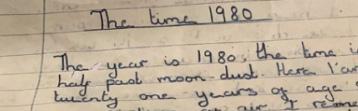 The time 1980
The year is 1980, the time i
half past moon-dust. Here I'm
twenty one years of age